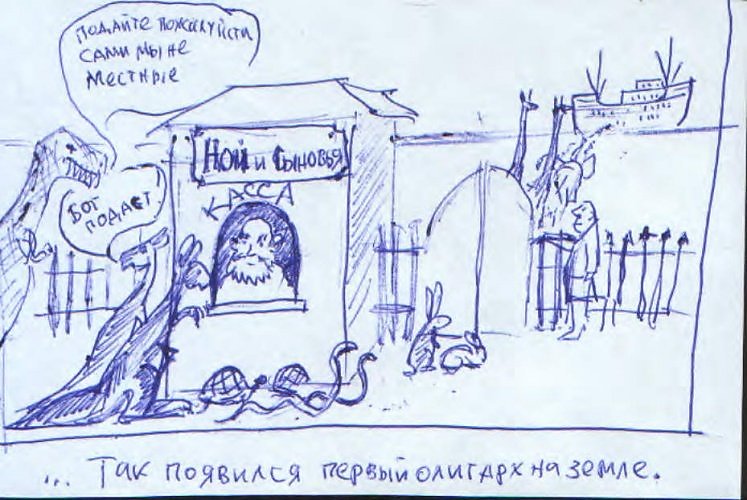 ПОДАЙТЕ ПОЖАЛУЙСТА
САМИ МЫ НЕ
МЕСТНЫЕ
БОГ
ПОДАСТ
НОЙ и СЫНОВЬЯ
КАССА
... ТАК ПОЯВИЛСЯ ПЕРВЫЙ ОЛИГАРХ НА ЗЕМЛЕ.